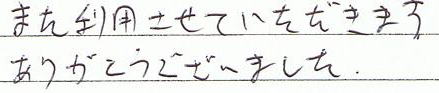 また利用させていただきます
ありがとうございました.